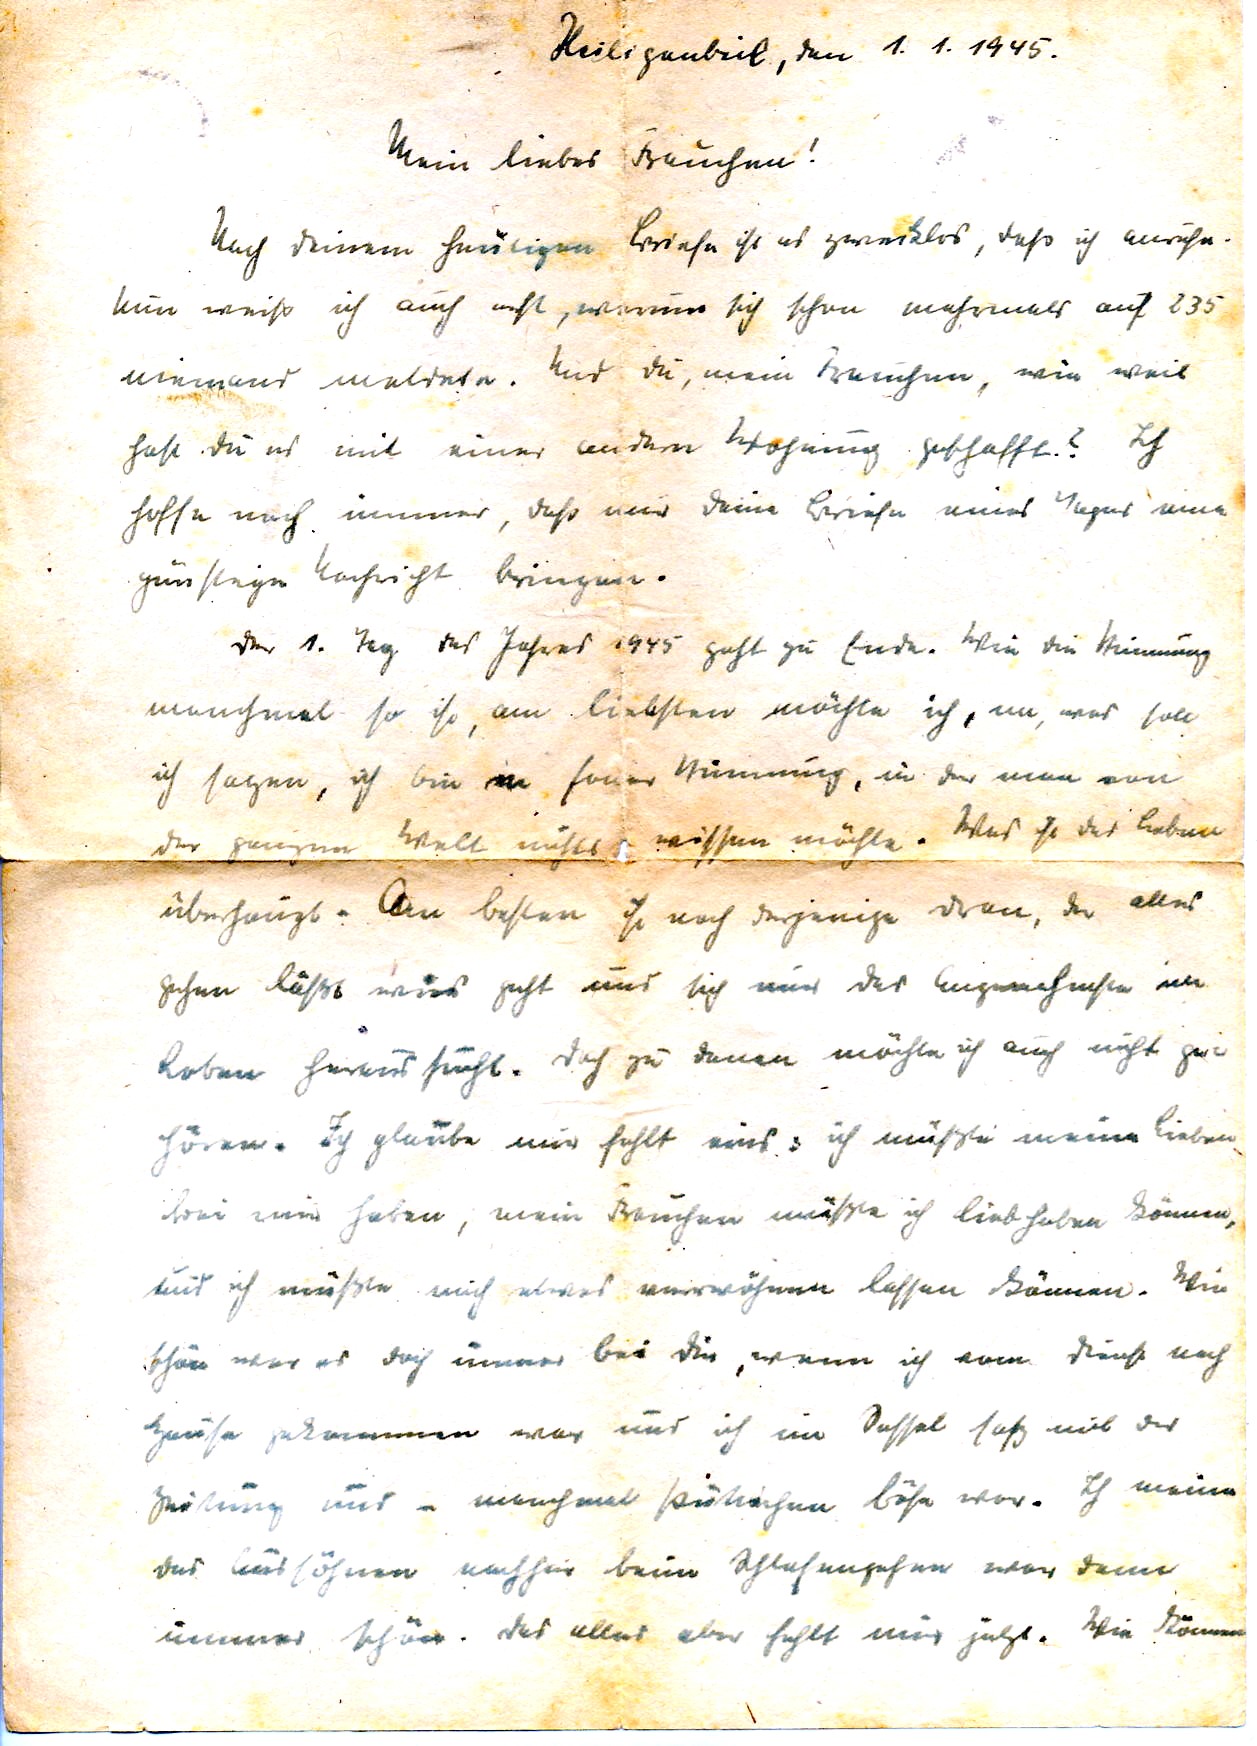 Heiligenbeil, den 1. 1. 1945.
Mein liebes Frauchen!
Nach deinem heutigen Briefe ist es zwecklos, daß ich anrufe.
Nun weiß ich auch erst, warum sich schon mehrmals auf 235
niemand meldete. Und du, mein Frauchen, wie weit
hast du es mit einer andern Wohnung geschafft? Ich
hoffe noch immer, daß mir deine Briefe eines Tages eine
günstige Nachricht bringen.
Der 1. Tag des Jahres 1945 geht zu Ende. Wie die Stimmung
manchmal so ist, am liebsten möchte ich, na, was soll
ich sagen, ich bin in so einer Stimmung, in der man von
der ganzen Welt nichts wissen möchte. Was ist das Leben
überhaupt. Am besten ist noch derjenige dran, der alles
gehen läßt wies geht und sich nur das Angenehmste im
Leben heraussucht. Doch zu denen möchte ich auch nicht ge-
hören. Ich glaube mir fehlt eins: ich müßte meine Lieben
bei mir haben, mein Frauchen müßte ich liebhaben können,
und ich müßte mich etwas verwöhnen lassen können. Wie
schön war es doch immer bei dir, wenn ich vom Dienst nach
Hause gekommen war und ich im Sessel saß mit der
Zeitung und - manchmal böse war. Ich meine
das Aussöhnen nachher beim Schlafengehen war dann
immer schön. Das alles aber fehlt mir jetzt. Wie können